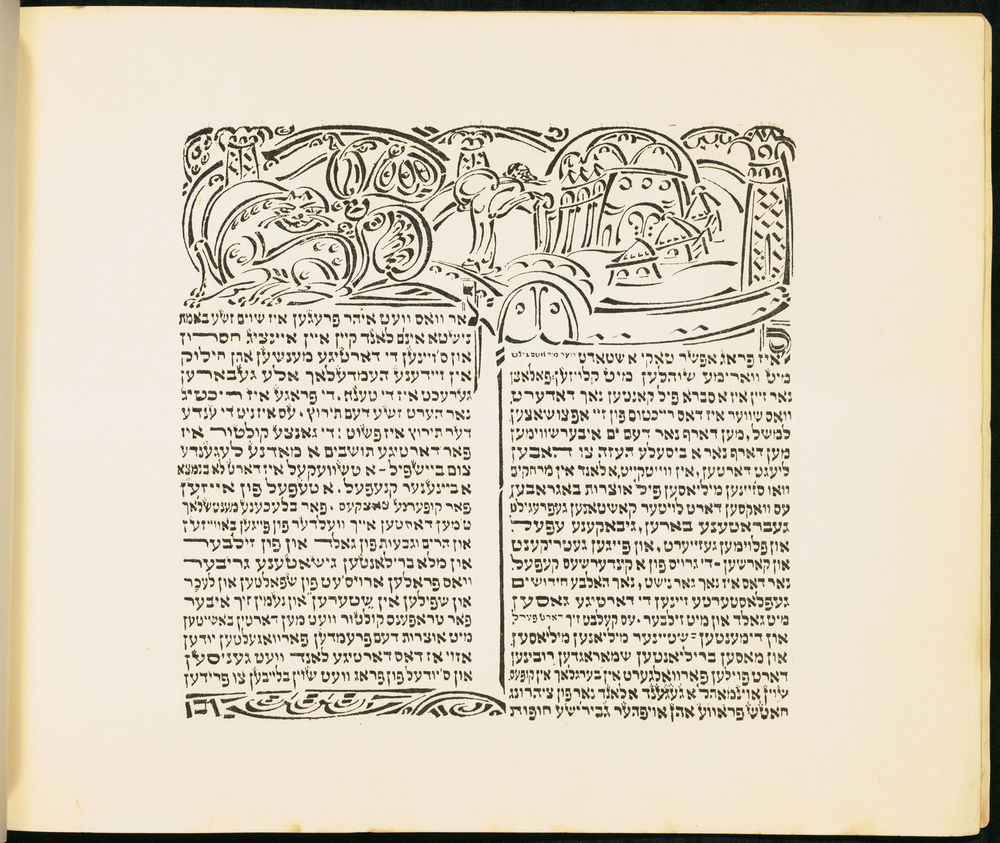 איז פראג אפשר טאקי א שטאדט ווער מיר וואס גילט
מיט ווארימע שיהלען מיט קלויזען־פאלאצן
נאר זיין איז א סברא פיל קאנטען נאך דאדערט
וואס שווער איז דאס רייכטום פון זיי אפצושאצען
למשל, מען דארף נאר דעם ים איבערשווימען
מען דארף נאר א ביסעלע העזה צו האבען
ליעגט דארטען, אין ווייטקייט, א לאנד אין מרחקים
וואו ס׳זיינען מיליאסען פיל אוצרות באגראבען
עס וואקסען דארט לויטער קאשטאנען געפרעגילט
געבראטענע בארען, געבאקענע עפעל
און פלוימען געזייערט, און פייגען געטריקענט
און קארשען – די גרויס פון א קינדערשעס קעפעל
נאר דאס איז נאך גאר נישט, נאך האלבע חידושים
געפלאסטערטע זיינען די דארטיגע גאסען
מיט גאלד און מיט זילבער. עס קעלבט זיך דארט פערל
און דימענטען – שטיינער מיליאנען מיליאסען
און מאסען בריליאנטען שמאראגדען רובינען
דארט פוילען פארוואלגערט אין בערגלאך אין קופעס
שוין איינמאהל א געגענד א לאנד נאר פון ציהרונג
חאטש פראווע אהן אויפהער גבירישע חופות
אר וואס וועט איהר פרעגען איז שוים זשע באמת
נישטא אינם לאנד קיין איין איינציג חסרון
און ס׳זיינען די דארטיגע מענשען אהן חילוק
אין זיידענע העמדעלאך אלע געבארען
גערעכט איז די טענה. די פראגע איז ריכטיג
נאר הערט זשע דעם תירוץ. עס איז ניט די ענדע
דער תירוץ איז פשוט: די גאנצע קולטור איז
פאר דארטיגע תושבים א מאדנע לעגענדע
צום ביישפיל – א טשוועקעל איז דארט לא בנמצא
א ביינענער קנעפעל. א טעפעל פון אייזען
פאר קופערנע צאצקעס. פאר בלעכענע מענטשלאך
טמען דאסטען אייך וועלדער פון פייגען באווייזען
און הרים וגבעות פון גאלד און פון זילבער
און מלא ברילאנטען גישאטענע גריבער
וואס פראלען ארויס עט פון שפאלטען און לעכער
און שפילען אין שטערען און נעמין זיך איבער
פאר טראפענס קולטור וועט מען דארטין באשיטען
מיט אוצרות דעם פרעמדען פארוואגעלטען יודען
אזוי אז דאס דארטיגע לאנד וועט געניסען
און ס׳יודעל פון פראג וועט שוין בלייבען צו פרידען